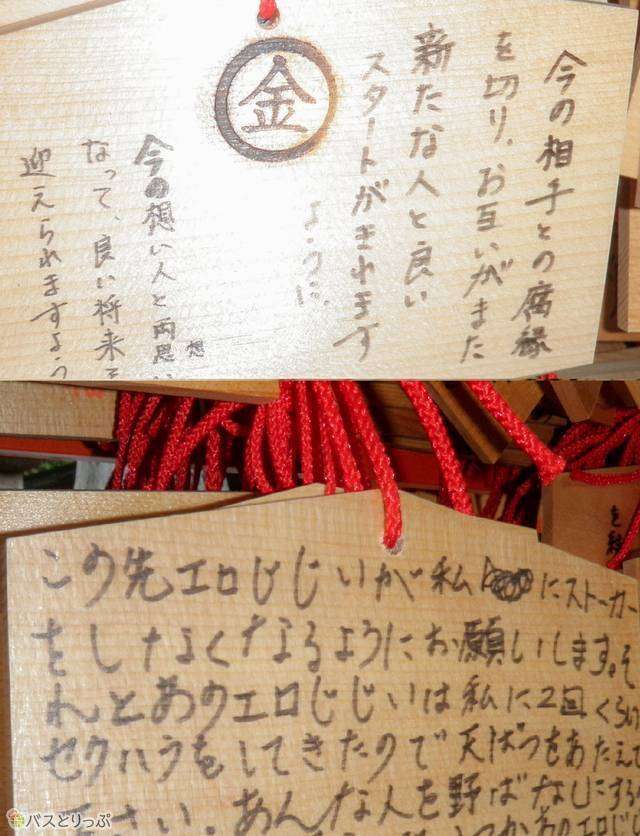 今の相手との腐縁
を切り、お互いがまた
新たな人と良い
スタートがきれます
ように。
金
今の想い人と両思い
想
なって、良い将来を
迎えられますよう
この先エロじじいが私にストーカー
をしなくなるようにお願いします。そ
れとあのエロじじいは私に2回くらい
セクハラをしてきたので天ばつをあたえて
下さい、あんな人を野ばなしにする
あのエロじ
バスとりっぷ